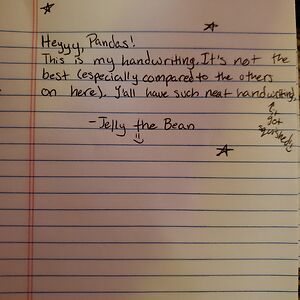 Heyyy, Pandas!
This is my handwriting. It's not the
best (especially compared to the others
on here). Y'all have such neat handwriting.
↑
got
squished
- Jelly the Bean